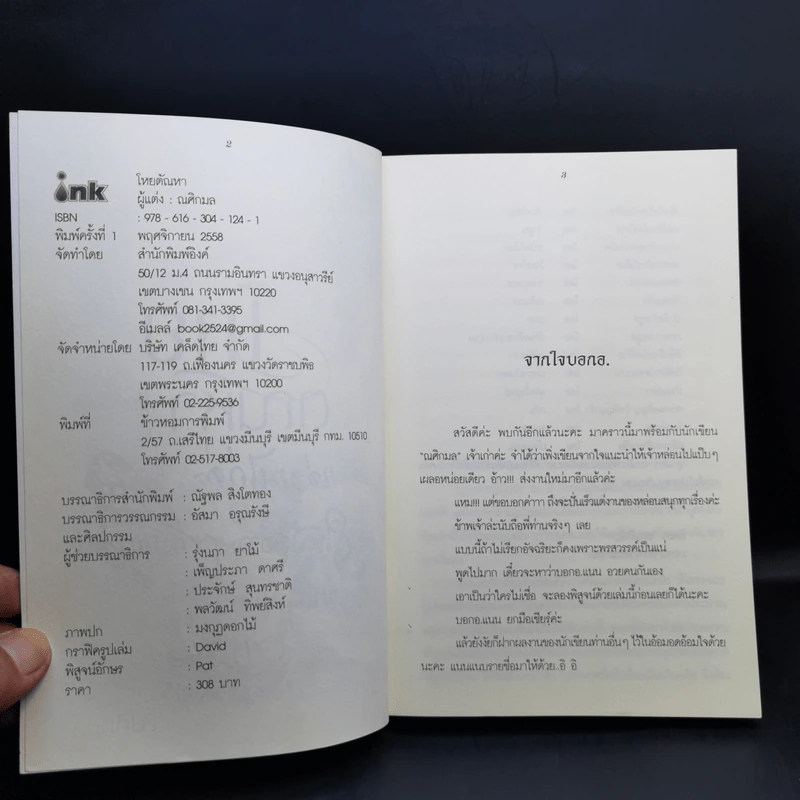 2
ink
โหยตัณหา
ผู้แต่ง : ณศิกมล
ISBN : 978 - 616 - 304 - 124 - 1
พิมพ์ครั้งที่ 1 พฤศจิกายน 2558
จัดทำโดย สำนักพิมพ์อิงค์
50/12 ม.4 ถนนรามอินทรา แขวงอนุสาวรีย์
เขตบางเขน กรุงเทพฯ 10220
โทรศัพท์ 081-341-3395
อีเมลล์ book2524@gmail.com
จัดจำหน่ายโดย บริษัท เคล็ดไทย จำกัด
117-119 ถ.เฟื่องนคร แขวงวัดราชบพิธ
เขตพระนคร กรุงเทพฯ 10200
โทรศัพท์ 02-225-9536
พิมพ์ที่ ข้าวหอมการพิมพ์
2/57 ถ.เสรีไทย แขวงมีนบุรี เขตมีนบุรี กทม. 10510
โทรศัพท์ 02-517-8003
บรรณาธิการสำนักพิมพ์ : ณัฐพล สิงโตทอง
บรรณาธิการวรรณกรรม : อัสมา อรุณรังษี
และศิลปกรรม
ผู้ช่วยบรรณาธิการ : รุ่งนภา ยาโม้
: เพ็ญประภา ดาศรี
: ประจักษ์ สุนทรชาติ
: พลวัฒน์ ทิพย์สิงห์
ภาพปก : มงกุฎดอกไม้
กราฟิครูปเล่ม : David
พิสูจน์อักษร : Pat
ราคา : 308 บาท
3
จากใจบอกอ.
สวัสดีค่ะ พบกันอีกแล้วนะคะ มาคราวนี้มาพร้อมกับนักเขียน
"ณศิกมล" เจ้าเก่าค่ะ จำได้ว่าเพิ่งเขียนจากใจแนะนำให้เจ้าหล่อนไปแป๊บๆ
เผลอหน่อยเดียว อ้าว!!! ส่งงานใหม่มาอีกแล้วค่ะ
แหม!!! แต่ขอบอกค่าาา ถึงจะปั่นเร็วแต่งานของหล่อนสนุกทุกเรื่องค่ะ
ข้าพเจ้าล่ะนับถือพี่ท่านจริงๆ เลย
แบบนี้ถ้าไม่เรียกอัจฉริยะก็คงเพราะพรสวรรค์เป็นแน่
พูดไปมาก เดี๋ยวจะหาว่าบอกอ.แนน อวยคนกันเอง
เอาเป็นว่าใครไม่เชื่อ จะลองพิสูจน์ด้วยเล่มนี้ก่อนเลยก็ได้นะคะ
บอกอ.แนน ยกมือเชียร์ค่ะ
แล้วยังงัยก็ฝากผลงานของนักเขียนท่านอื่นๆ ไว้ในอ้อมอดอ้อมใจด้วย
นะคะ แนนแนบรายชื่อมาให้ด้วย..อิ อิ